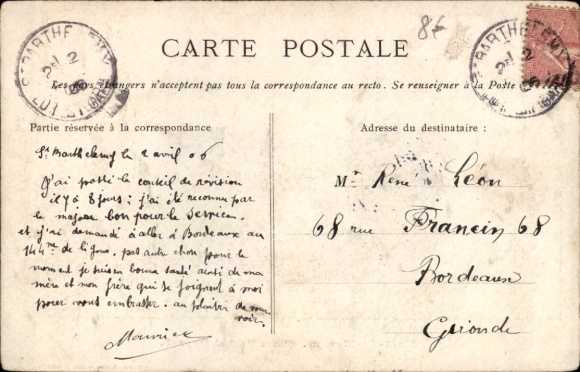 8f
CARTE POSTALE
Les pays étrangers n'acceptent pas tous la correspondance au recto. Se renseigner à la Poste
Partie réservée à la correspondance
St Barthelemy le 2 avril 06
J'ai passé le conseil de révision
il y a 8 jours; j'ai été reconnu par
le major bon pour le service.
et j'ai demandé à aller à Bordeaux au
144me de ligne. pas autre chose pour le
moment je suis en bonne santé ainsi de ma
mère et mon frère qui se joignent à moi
pour vous embrasser. au plaisir de vous
voir.
Maurice
Adresse du destinataire :
Mr René Léon
68 rue Francin 68
Bordeaux
Gironde
ST BARTHELEMY
2
06
LOT-ET-GAR